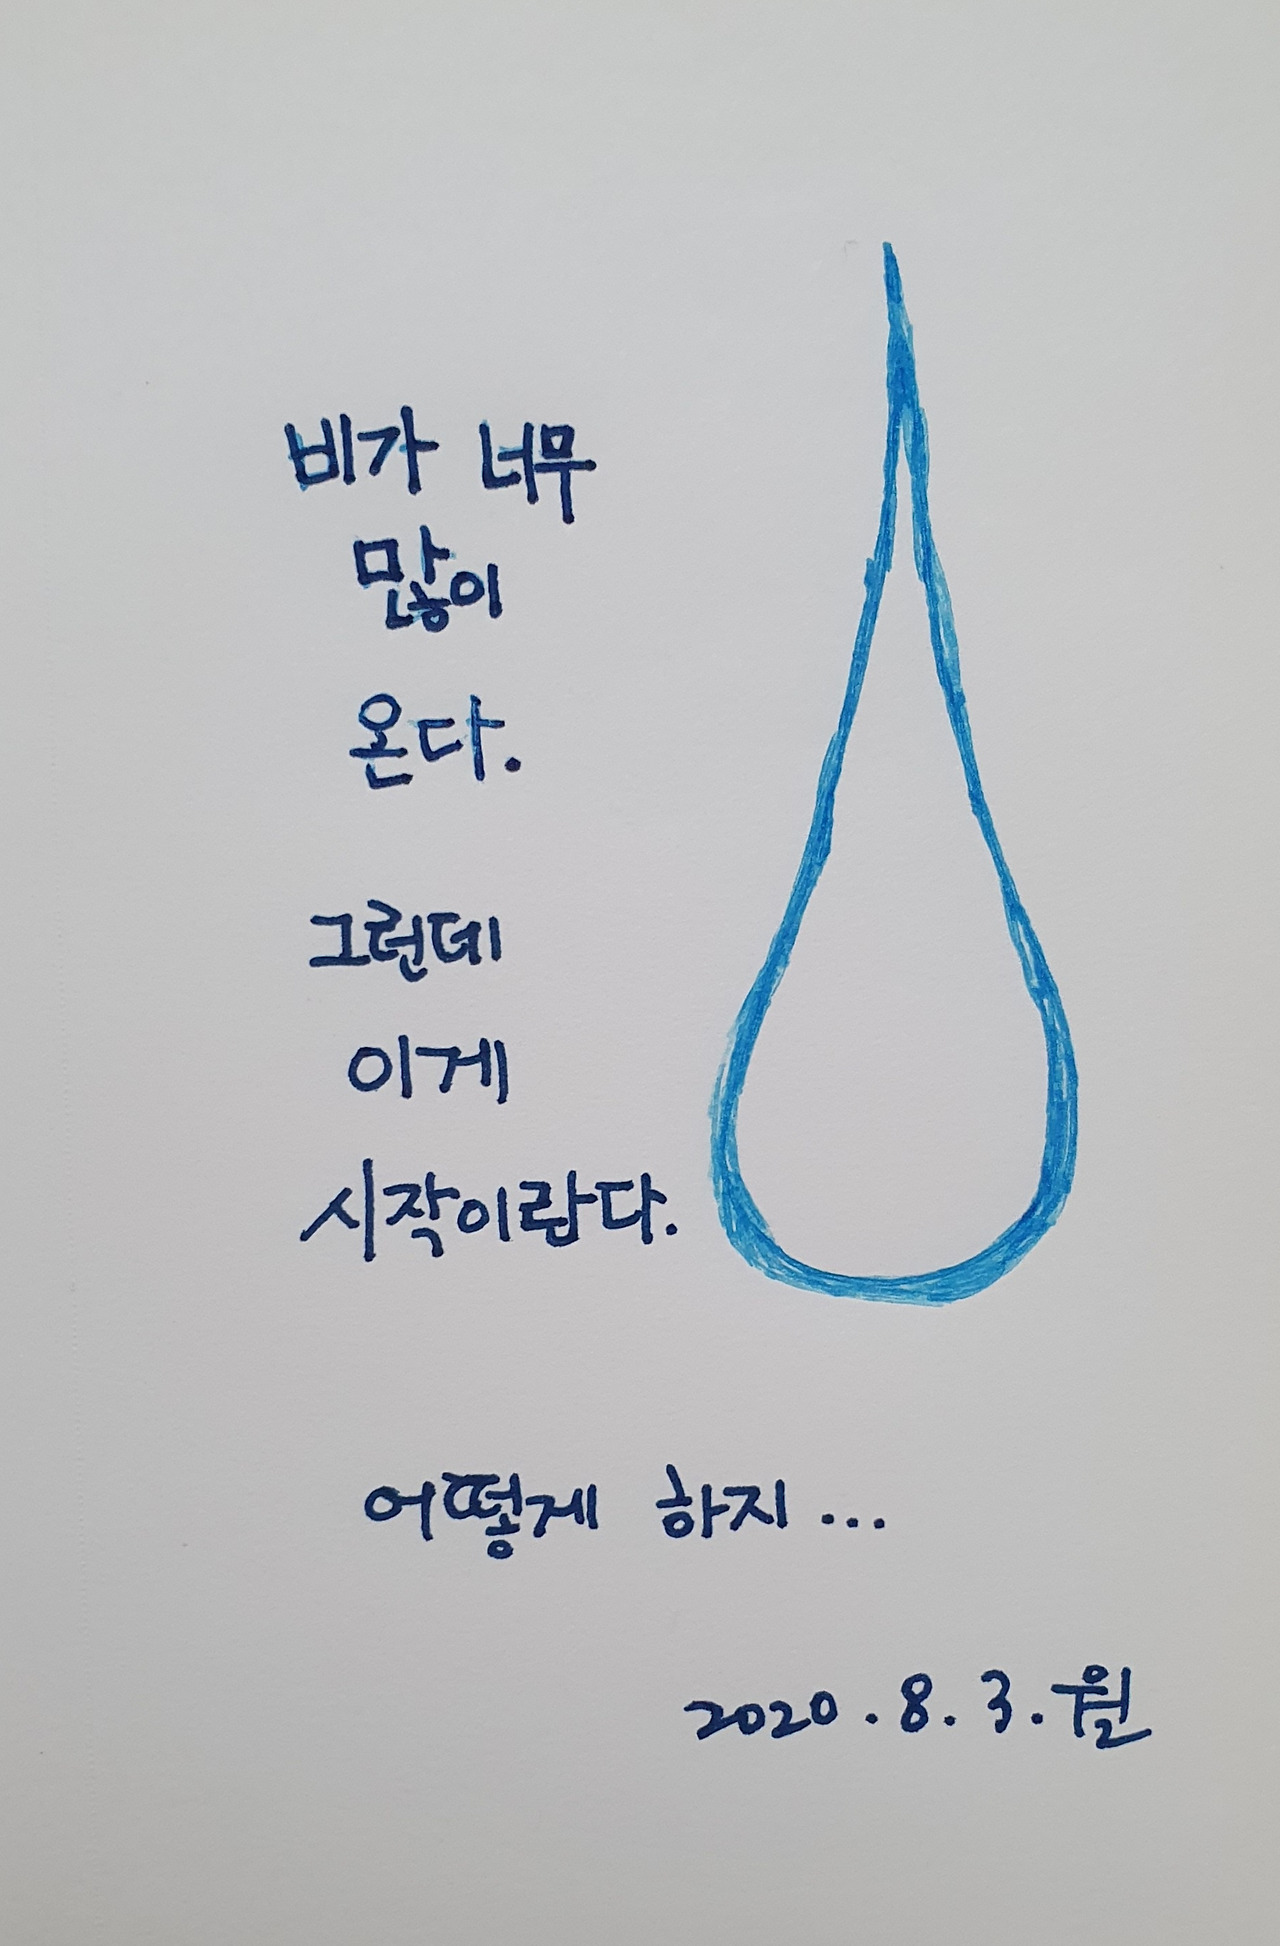 비가 너무
많이
온다.
그런데
이게
시작이랍다.
어떻게 하지...
2020.8.3.월